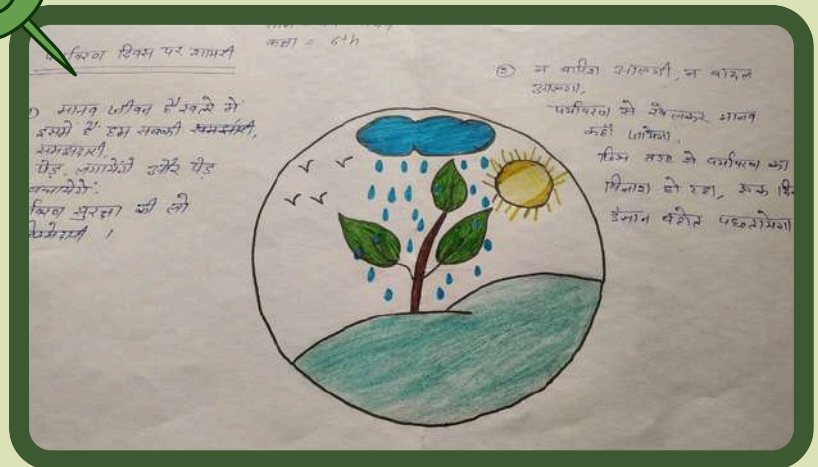 पर्यावरण दिवस पर शायरी
कक्षा = 6th
मानव जीवन है खतरे में
इसमें है हम सबकी समझदारी,
समझदारी,
पेड़ लगायेंगे और पेड़
बचायेंगे.
सुरक्षा की लो
② न बारिश आएगी, न बादल
आएगा,
पर्यावरण से खेलकर मानव
कहाँ जायेगा,
जिस तरह से पर्यावरण का
विनाश हो रहा, एक दिन
इंसान बहोत पछतायेगा